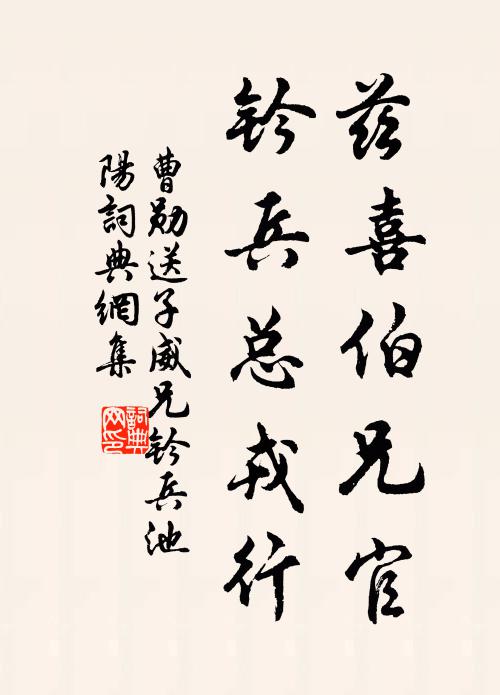 兹喜伯兄官
钤兵总戎行
曹勋送子威兄钤兵池
陽詞典網集
詞典網印